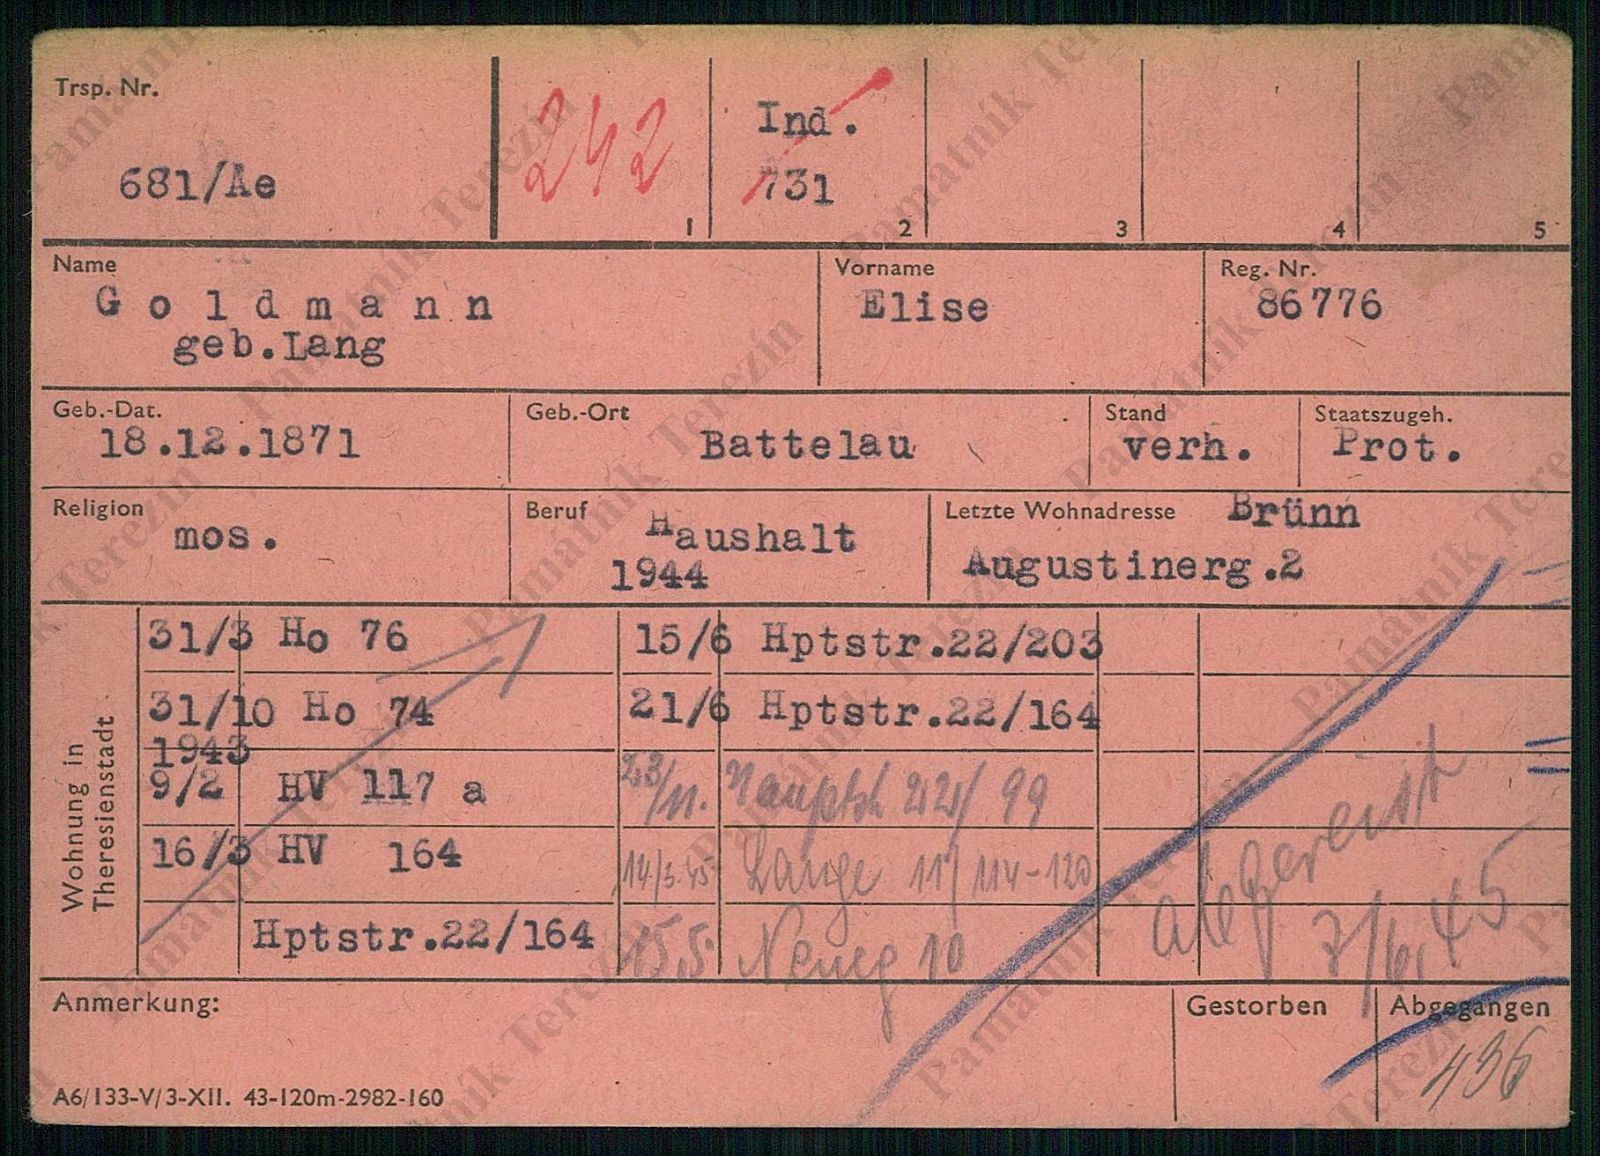 Trsp. Nr.
681/Ae
242
1
Ind.
731
2
3
4
5
Name
Goldmann
geb.Lang
Vorname
Elise
Reg. Nr.
86776
Geb.-Dat.
18.12.1871
Geb.-Ort
Battelau
Stand
verh.
Staatszugeh.
Prot.
Religion
mos.
Beruf
Haushalt
1944
Letzte Wohnadresse Brünn
Augustinerg.2
Wohnung in
Theresienstadt
31/3 Ho 76
31/10 Ho 74
1943
9/2 HV 117 a
16/3 HV 164
Hptstr.22/164
15/6 Hptstr.22/203
21/6 Hptstr.22/164
23/11. Hauptstr 22/ 99
14/3.45 Lange 11/ 114-120
15.5. Neueg 10
abgereist
7/6.45
Anmerkung:
Gestorben
Abgegangen
436
A6/133-V/3-XII. 43-120m-2982-160
Památník Terezín